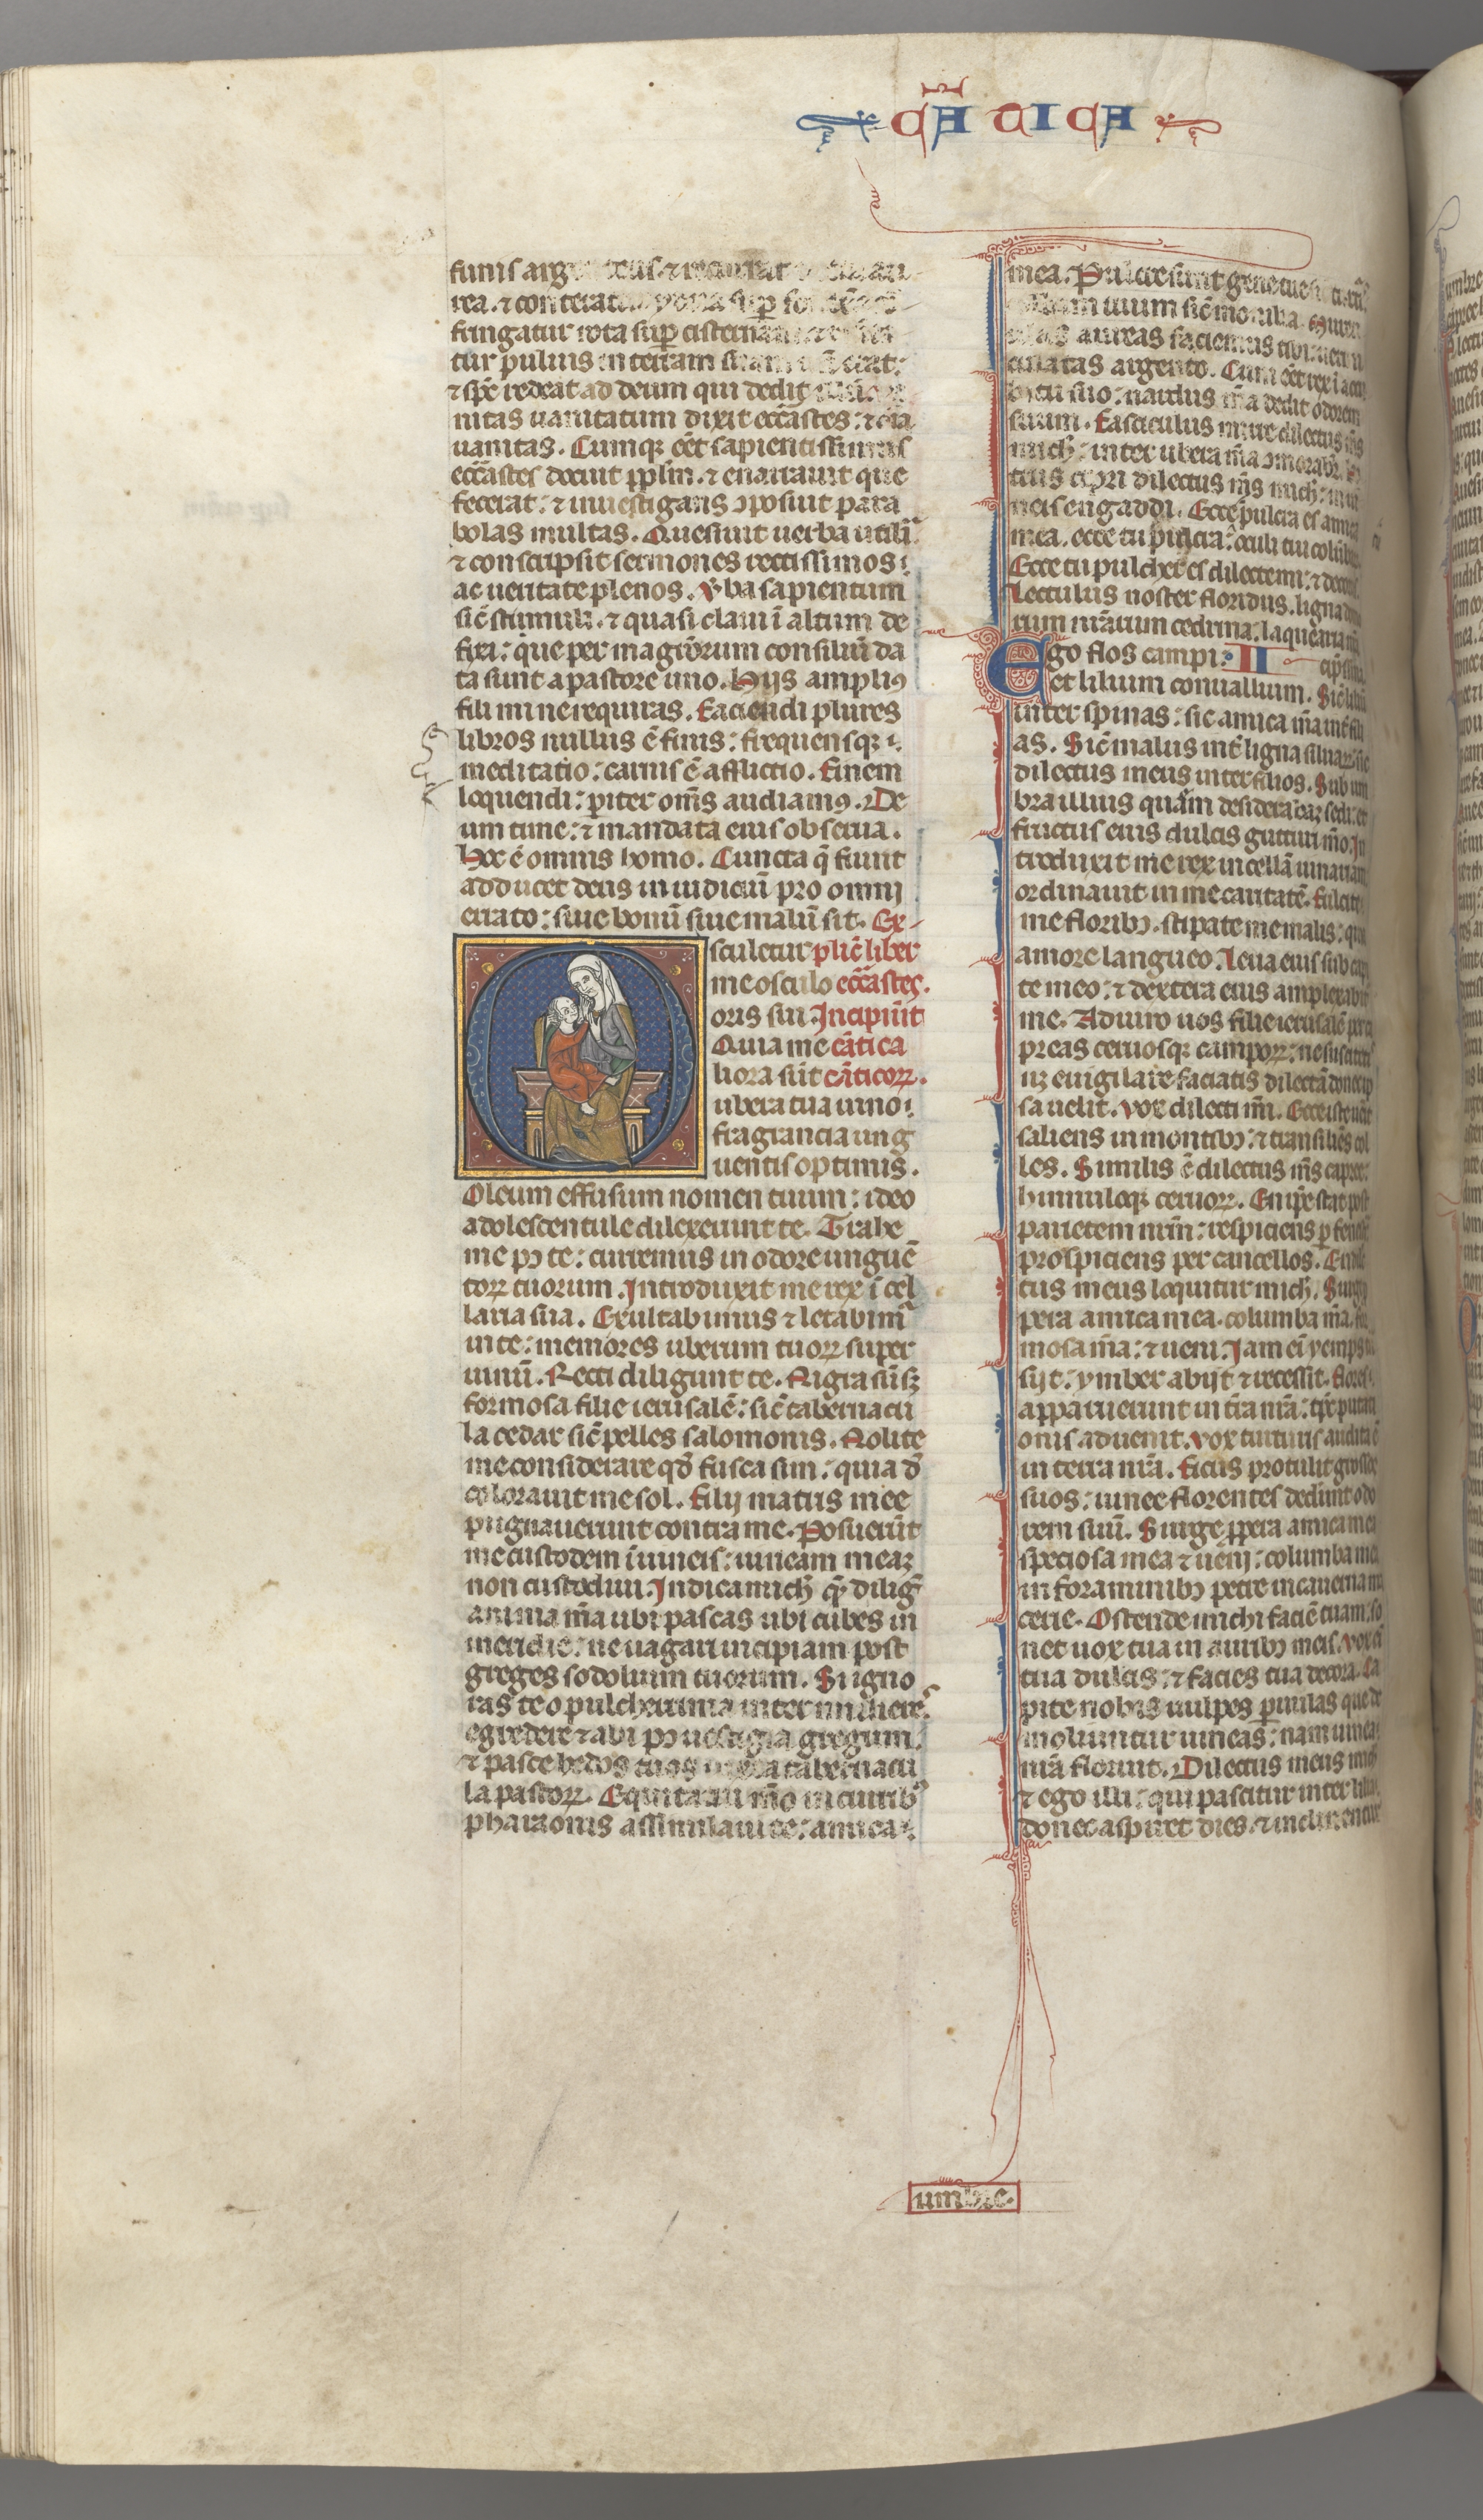 CÃTICA
funis arg
rea. ⁊ conterat
fringatur rota sup̱ cisternam
tur puluis in terram suam
⁊ sp̄c redeat ad deum qui dedit
nitas uanitatum dixit eccāstes: ⁊ oīa
uanitas. Cumqꝫ eēt sapientissimus
eccāstes docuit ppl̄m. ⁊ enarrauit que
fecerat: ⁊ inuestigans ɔposuit para
bolas multas. Quesiuit uerba utilia
⁊ conscripsit sermones rectissimos:
ac ueritate plenos. Vba sapientum
sic̄ stimuli. ⁊ quasi claui ī altum de
fixi: que per magr̄orum consiliū da
ta sunt a pastore uno. Hijs amplius
fili mi ne requiras. Faciendi plures
libros nullus ē finis: frequensqꝫ
meditatio: carnis ē afflictio. Finem
loquendi: p̱iter om̄s audiamus. De
um time: ⁊ mandata eius obserua.
Hoc ē omnis homo. Cuncta q̄ fiunt
adducet deus in iudiciū pro omni
errato: siue bonū siue malū sit. Ex-
sculetur plic̄ liber
me osculo eccāstes.
oris sui Incipiūt
Quia me cātica
liora sūt cāticoꝝ.
ubera tua uino:
fragrancia ung
uentis optimis.
Oleum effusum nomen tuum: ideo
adolescentule dilexerunt te. Trahe
me pꝯ te: curremus in odore unguē
toꝝ tuorum. Introduxit me rex ī cel
laria sua. Exultabimus ⁊ letabimur
in te: memores uberum tuoꝝ super
uinū. Recti diligunt te. Nigra sū sꝫ
formosa filie ierusalē: sic̄ tabernacu
la cedar sic̄ pelles salomonis. Nolite
me considerare qđ fusca sim: quia d̄
colorauit me sol. Filij matris mee
pugnauerunt contra me. Posuerūt
me custodem ī uineis: uineam meaꝫ
non custodiui. Indica mich̄ quem diliḡ
anima m̄a ubi pascas ubi cubes in
meridie: ne uagari incipiam post
greges sodolium tuorum. Si igno
ras te o pulcherrima inter mulieres
egredere ⁊ abi pꝯ uestigia gregum.
⁊ pasce hedos tuos iuxta tabernacu
la pastoꝝ. Equitatui m̄o in curribꝯ
pharaonis assimilaui te: amica:
mea. Pulcre sunt gene tue
collum tuum sic̄ monilia. Muren
ulas aureas faciemus tibi uermi
culatas argento. Cum eēt rex ī accu
bitu suo: nardus m̄a dedit odorem
suum. Fasciculus mirre dilectus m̄s
mich̄: inter ubera m̄a ɔmorabr̄.
trus cipri dilectus m̄s mich̄: in ui
neis engaddi. Ecce pulcra es amica
mea. ecce tu pulcra: oculi tui colūb
Ecce tu pulcher es dilecte mi: ⁊ decor
Lectulus noster floridus. ligna do
rum nr̄arum cedrina. laquearia nr̄a
Ego flos campi: II cip̄ssina.
et lilium conuallium. Sic̄ liliū
inter spinas: sic amica m̄a int̄ fili
as. Sic̄ malus int̄ ligna siluaꝝ: sic
dilectus meus inter filios. Sub um
bra illius quam desideraueraꝫ sedi: et
fructus eius dulcis gutturi m̄o. In
troduxit me rex in cellā uinariam
ordinauit in me caritatē. Fulcite
me floribꝯ. stipate me malis: quia
amore langueo. Leua eius sub capi
te meo: ⁊ dextera eius amplexabit̄
me. Adiuro uos filie ierusalē per ca
preas ceruosqꝫ campoꝝ: ne suscitetis
uꝫ euigilare faciatis dilectā donec ip
sa uelit. Vox dilecti m̄i. Ecce iste uēit
saliens in montibꝯ: ⁊ transiliēs col
les. Similis ē dilectus m̄s capree:
hinnuloqꝫ ceruoꝝ. En ip̄e stat post
parietem nr̄m: respiciens p̱ fenestr̄
prospiciens per cancellos. En dilec
tus meus loquitur mich̄. Surge
pera amica mea. columba m̄a. for
mosa m̄a: ⁊ ueni. Iam eī yemps tra
sijt: ymber abijt ⁊ recessit. flores
apparuerunt in tr̄a nr̄a: tp̄c putati
onis aduenit. Vox turturis audita ē
in terra nr̄a. Ficus protulit grossos
suos: uinee florentes dederunt odo
rem suū. Surge ꝓpera amica mea
speciosa mea ⁊ ueni: columba mea
in foraminibꝯ petre in cauerna ma
cerie. Ostende michi faciē tuam: so
net uox tua in auribꝯ meis. Vox eī
tua dulcis: ⁊ facies tua decora. Ca
pite nobis uulpes paruulas que de
moliuntur uineas: nam uinea
nr̄a floruit. Dilectus meus mich̄
⁊ ego illi: qui pascitur inter lilia
donec aspiret dies. ⁊ inclinentur
umbre.